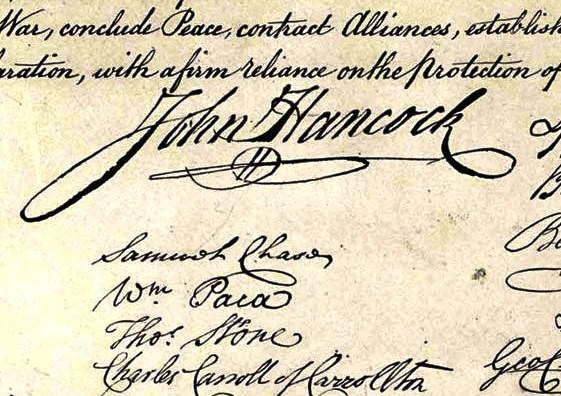 War, conclude Peace, contract Alliances, establish
aration, with a firm reliance on the Protection of
John Hancock
Samuel Chase
Wm Paca
Thos Stone
Charles Carroll of Carrollton
Geo